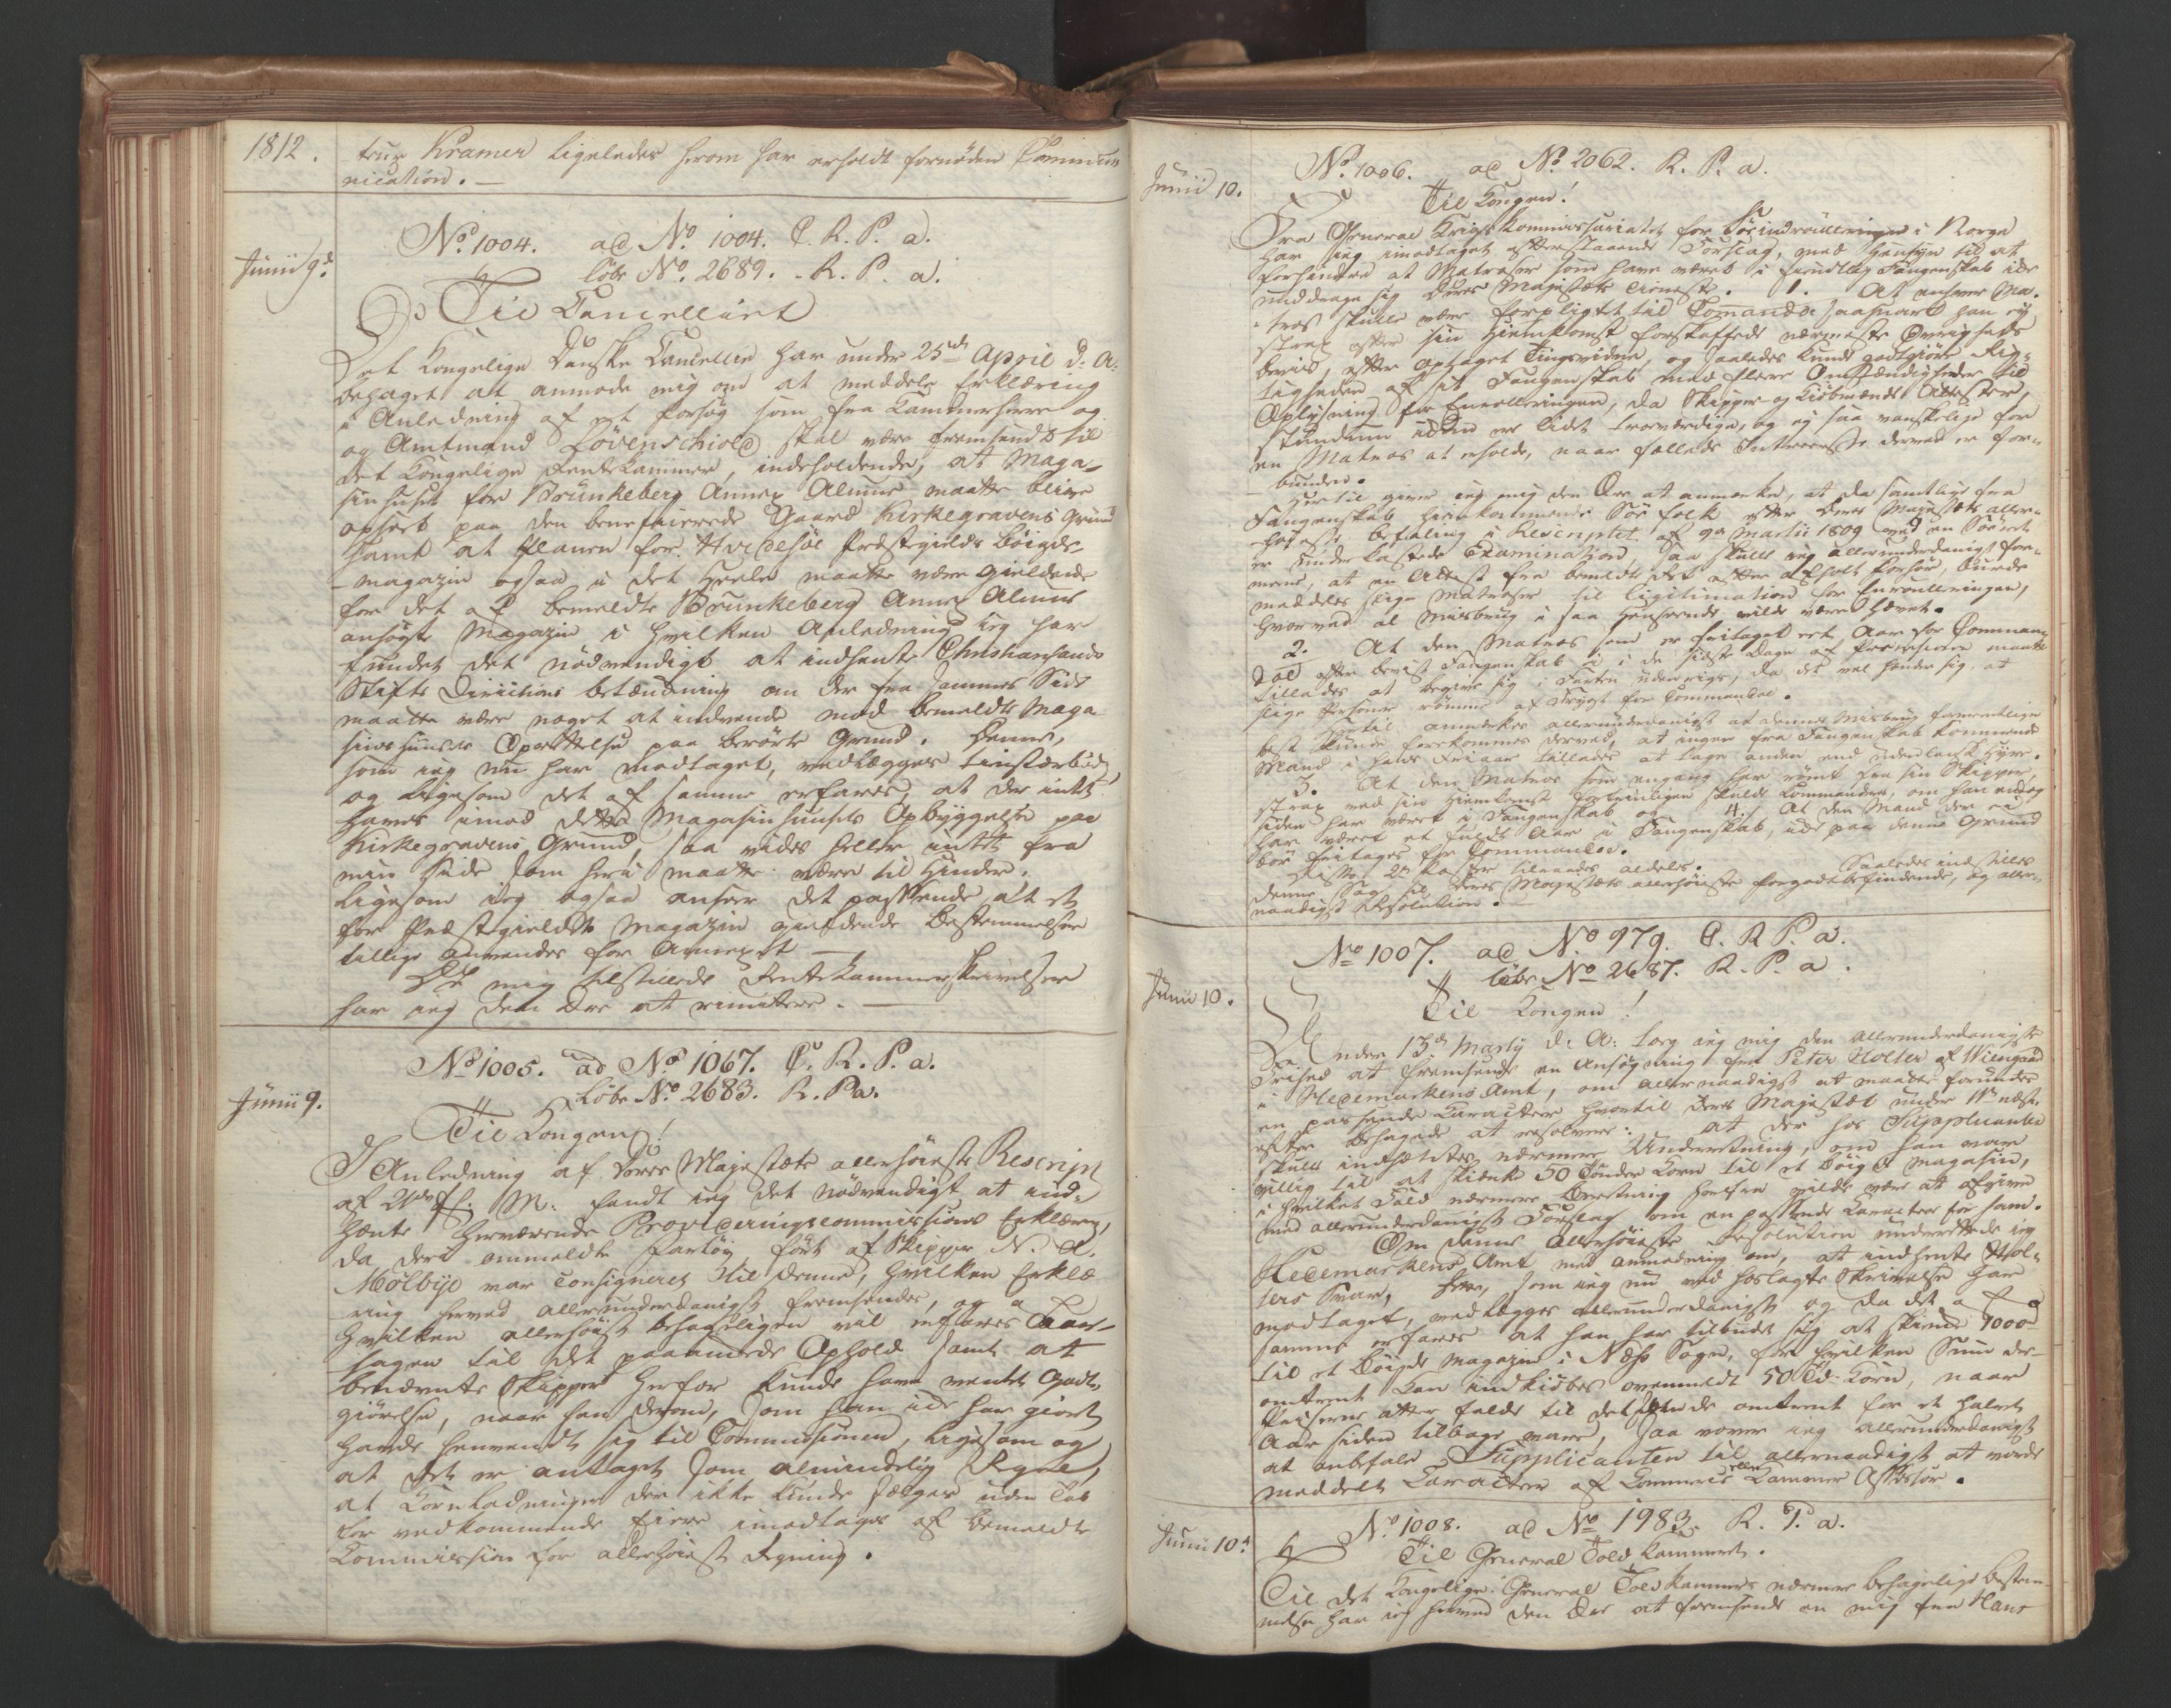 1812.
trup Kramer ligeledes herom har erholdt fornøden Commun
nication. —
No 1004. ad No 1004. C. R. P. a.
Junii 9d
löbe No. 2689. R. P. a.
Til Cancelliet
Det Kongelige Danske Cancellie har under 25de April d: A:
behaget at anmode mig om at meddele Erklæring
i Anledning af et forsøg som fra Kammerherre og
og Amtmand Lövenschiold skal være fremsendt til
det Kongelige Rentekammer, indeholdende, at Maga-
sinhuset for Brünkeberg Annex Almue maatte blive
opført paa den beneficerede Gaard Kirkegravens Grund
samt at Planen for Hvidesöe Præstegields Böigde-
magazin ogsaa i det Heele maatte være gieldende
for det af bemeldte Brunkeberg Annex Almue
ansøgte Magazin i hvilken Anledning jeg har
fundet det nödvendigt at indhente Christiansands
Stifts Directions betænkning om der fra sammes Side
maatte være noget at indvende mod bemeldte Maga
sinshuusets Oprettelse paa berörte Grund. Denne,
som jeg nu har modtaget, vedlægges tienstærbødigst
og ligesom det af samme erfares, at der intet
haves imod dette Magasinhuusets Opbyggelse paa
Kirkegravens Grund, saa vides heller intet fra
min Side som heri maatte være til Hinder,
ligesom jeg ogsaa anseer det passende, at de
for Præstegieldets Magazin gieldende Bestemmelser
tillige anvendes for Annexet —
De mig tilstillede Rentekammerskrivelser
har jeg den Ære at remittere. —
No 1005. ad No. 1067. C. R. P. a.
Löbe No. 2683. R. P. a.
Junii 9.
Til Kongen!
I Anledning af Deres Majestæts allerhöieste Rescript
af 21de f. M. fandt jeg det nödvendigt at ind-
hente herværende Provideringscommissions Erklæring,
da det ommeldte Fartöj, fört af Skipper N. A.
Mölbye var consigneret til denne, hvilken Erklæ
ring herved allerunderdanigst fremsendes, og a
hvilken allerhöist behageligen vil erfares Aar-
sagen til det paaankede Ophold samt at
benævnte Skipper herfor kunde have ventet Godt-
giörelse, naar han derom, som han ikke har giort
havde henvendt sig til Commissionen, ligesom og
at det er antaget som almindelig Regel,
at Kornladninger der ikke kunde sælges uden Tab
for vedkommende Eiere imodtages af bemeldte
Commission for allerhöiest Regning.
Junii 10.
No. 1006. ad No 2062. R. P. a.
Til Kongen!
Fra General Krigs Kommissariatet for Söeindroulleringen i Norge
har jeg imodtaget efterstaaende Forslag, med Hensyn til at
forhindre at Matroser som have været i fiendtlig Fangenskab ikke
unddrage sig Deres Majestæts Tieneste. 1. At enhver Ma-
tros skulle være forpligtet til Commando saasnart han ej
strax efter sin Hiemkomst forskaffede nærmeste Övrigheds
beviis, efter optaget Tingsvidne, og saaledes kunde godtgiöre Rig-
tigheden af sit Fangenskab med flere Omstændigheder til
Oplysning for Enrolleringen, da Skipper og Kiöbmænds Attester,
stundum ere lidet troværdige, og ej saa vanskelige for
en Matros at erholde, naar fælleds Interesse dermed er for-
bunden.
Hertil giver jeg mig den Ære at anmerke, at da samtlige fra
Fangenskab hiemkommende Söe folk efter Deres Majestæts aller-
höieste befaling i Rescriptet af 9de Martii 1809 ved en Söeret
er underkastede Examination, saa skulle jeg allerunderdanigst for-
mene, at en Attest fra bemeldte Ret efter afholdt Forhör, burde
meddeles slige Matroser til Legitimation for Enroulleringen,
hvorved al misbrug i saa henseende vilde være hævet.
2. At den Matros som er fritaget eet Aar for Comman
do efter beviist Fangenskab ei i de sidste Dage af Permission maatte
tillades at begive sig i farten udenrigs, da det vel hender sig, at
slige Personer römme af Frygt for Commandoe.
Hertil anmerkes allerunderdanigst at dennes Misbrug formeentligen
best kunde forekommes derved, at ingen fra Fangenskab kommende
Mand i hans Friaar tillodes at tage anden end indenlandsk Hyre.
3. At den Matros som engang har römt fra sin Skipper,
strax ved sin Hiemkomst skulde Commanderes, om han end og
siden har været i Fangenskab og 4. At den Mand der ei
har været et fuldt Aar i Fangenskab, ikke paa denne Grund
bör fritages for Commandoe.
Disse 2de Poster tilraades aldeles. Saaledes indstilles
denne Sag til Deres Majestæts allerhöieste forgodtbefindende, og aller-
naadigst Resolution.
No 1007. ad No 979. C. R P. a.
löbe No 2687. R. P. a.
Junii 10.
Til Kongen!
Under 13de Martij d: A: tog jeg mig den allerunderdanigste
Frihed at fremsende en Ansögning fra Peter Holter af Wiengaard
i Hedemarkens Amt, om allernaadigst at maatte forundes
en passende Karacteer hvortil Deres Majestæt under 11te næst-
efter behagede at resolvere: at der hos Supplicanten
skulle indhæntes nærmere Underretning, om han var
villig til at skienke 50 Tönder Korn til et Böigde Magasin,
i hvilket Fald nærmere beretning herefter vilde være at afgive
med allerunderdanigst Forslag om en passende Karacteer for ham.
Om denne allerhöieste Resolution underrettede jeg
Hedemarkens Amt med anmodning om, at indhente Hol-
ters Svar, som jeg nu ved hoslagte Skrivelse har
modtaget, vedlægges allerunderdanigst og da det a
samme erfares at han har tilbudet sig at skienke 1000 d
til et Böigde Magazin i Næss Sogn, for hvilken Sum der
omtrent kan indkiöbes ovenmeldte 50 Td: Korn, naar
Priserne atter falde til det omtrent for et halvt
Aar siden tilbage vare, saa vover jeg allerunderdanigst
at anbefale Supplicanten til allernaadigst at vorde
meddelt Caracteer af Commerce eller Kammer Assessor.
No. 1008. ad No 1983. R. P. a.
Junii 10d
Til General Told Kammeret.
Til det Kongelige General Toldkammers nærmere behagelige bestem-
melse har jeg herved den Ære at fremsende en mig fra Hans